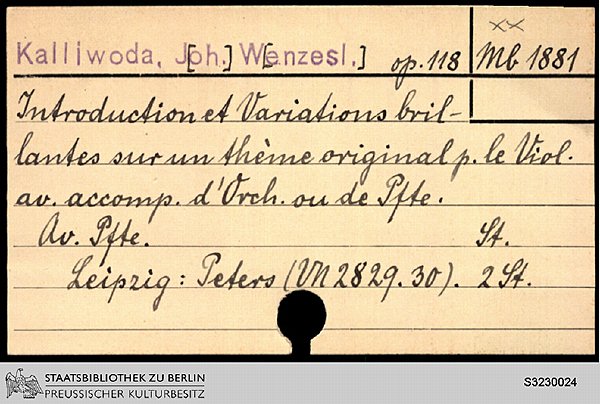 xx
Kalliwoda, J[oh.] W[enzesl.] op. 118 Mb 1881
Introduction et Variations bril-
lantes sur un thème original p. le Viol.
av. accomp. d'Orch. ou de Pfte.
Av. Pfte. St.
Leipzig: Peters (VN 2829.30). 2 St.
STAATSBIBLIOTHEK ZU BERLIN
PREUSSISCHER KULTURBESITZ
S3230024